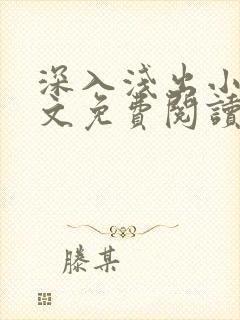 深入淺出小
文免費閱讀
滕某